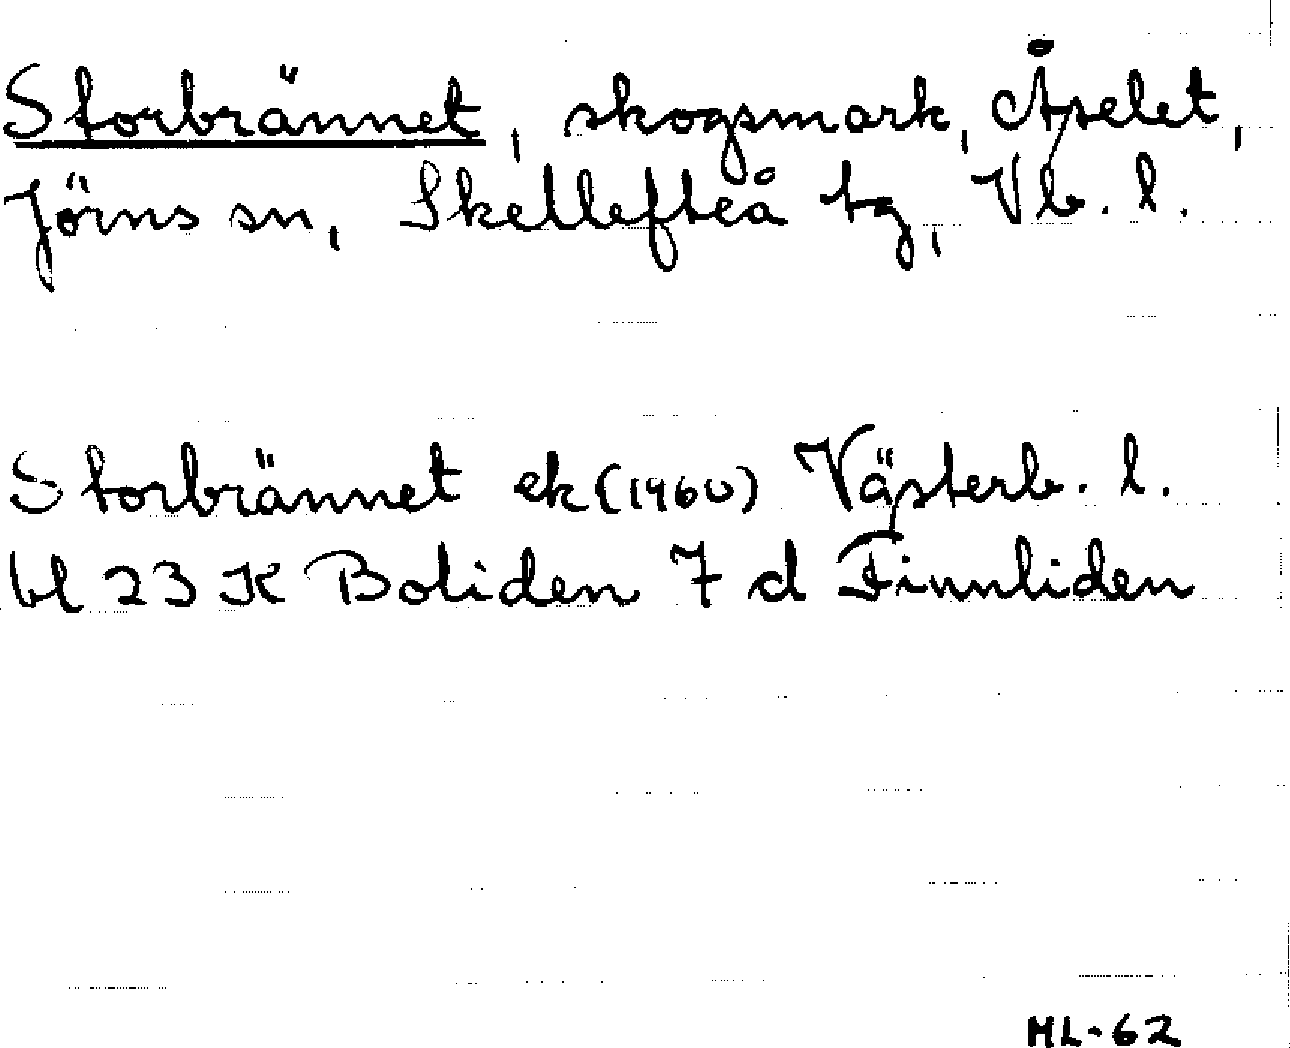 Storbrännet, skogsmark, Åselet,
Jörns sn, Skellefteå tg, Vb. l.
Storbrännet ek (1960) Västerb. l.
bl 23 K Boliden 7 d Finnliden
ML-62